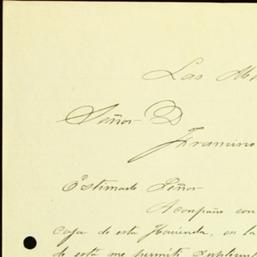 Las
Señor D
Francisco
Estimado Señor
Acompaño con
caja de esta Hacienda, en la
de esta me permití